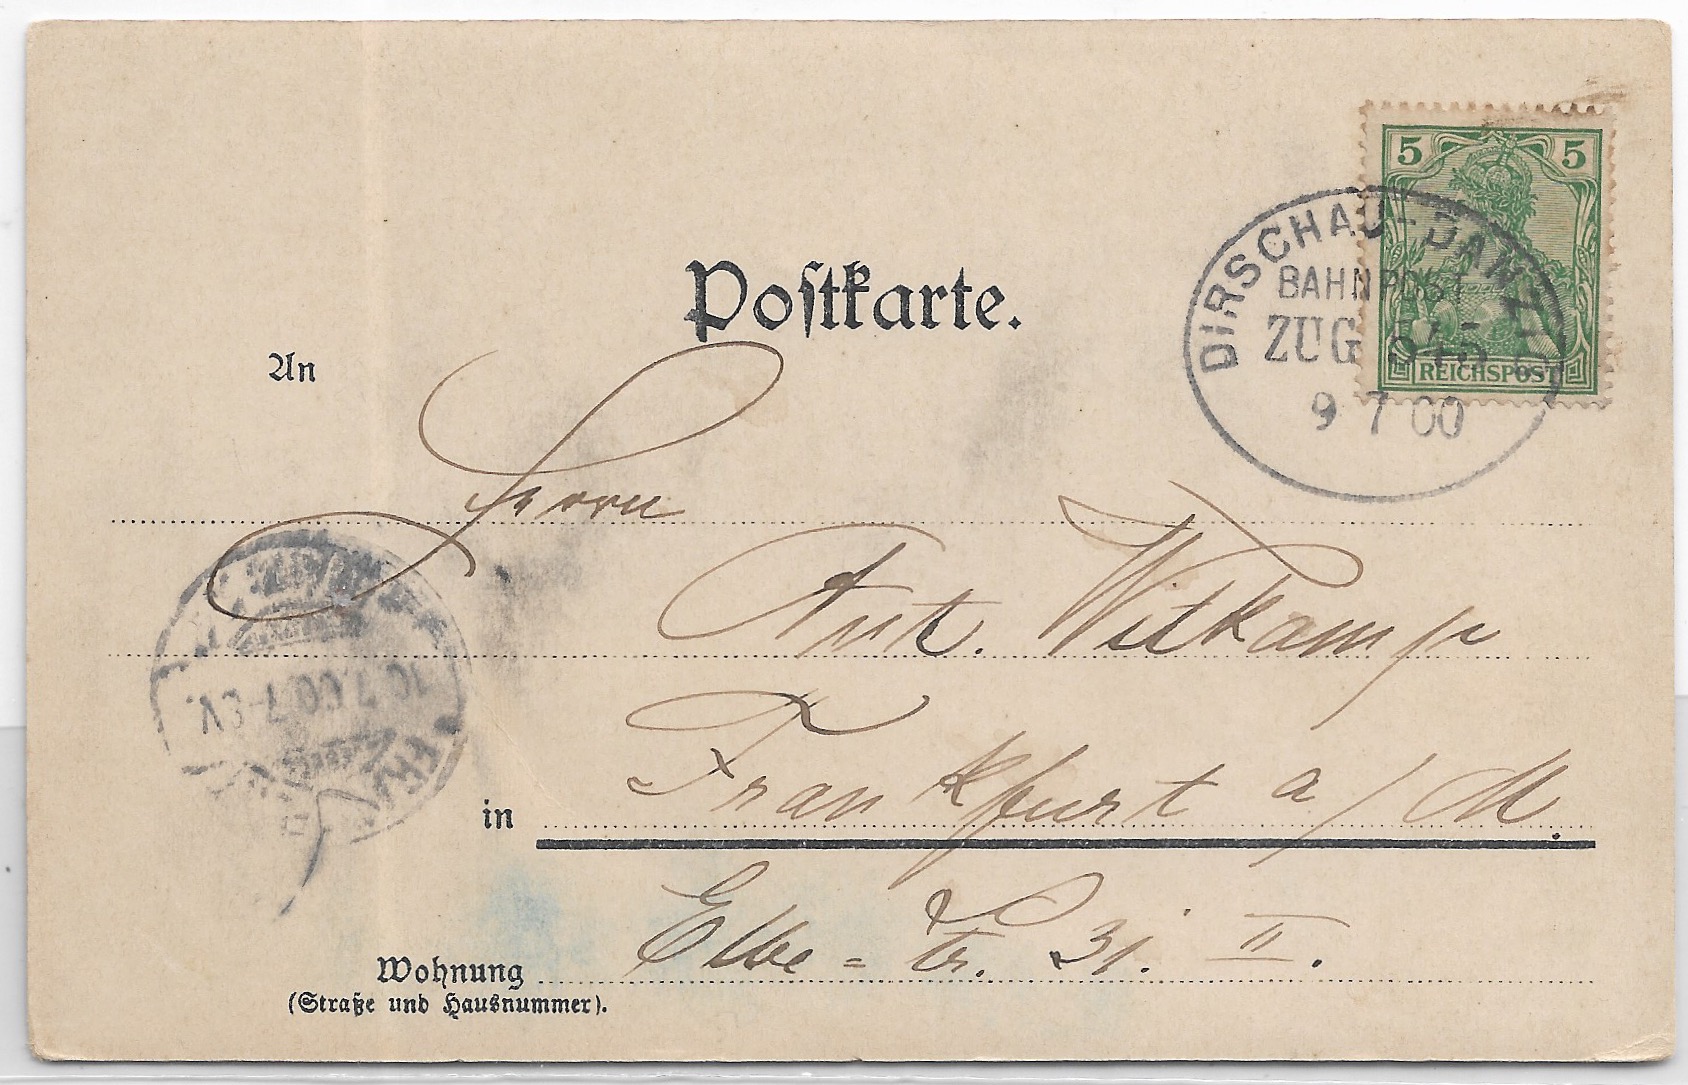 5 5
DIRSCHAU-DANZIG
BAHNPOST
ZUG 545
REICHSPOST
9 7 00
Postkarte.
An
Herrn
Ant. Witkamp
in Frankfurt a/M.
Elbe=Str. 31. II.
Wohnung
(Straße und Hausnummer).
10.7.00.7-8V.